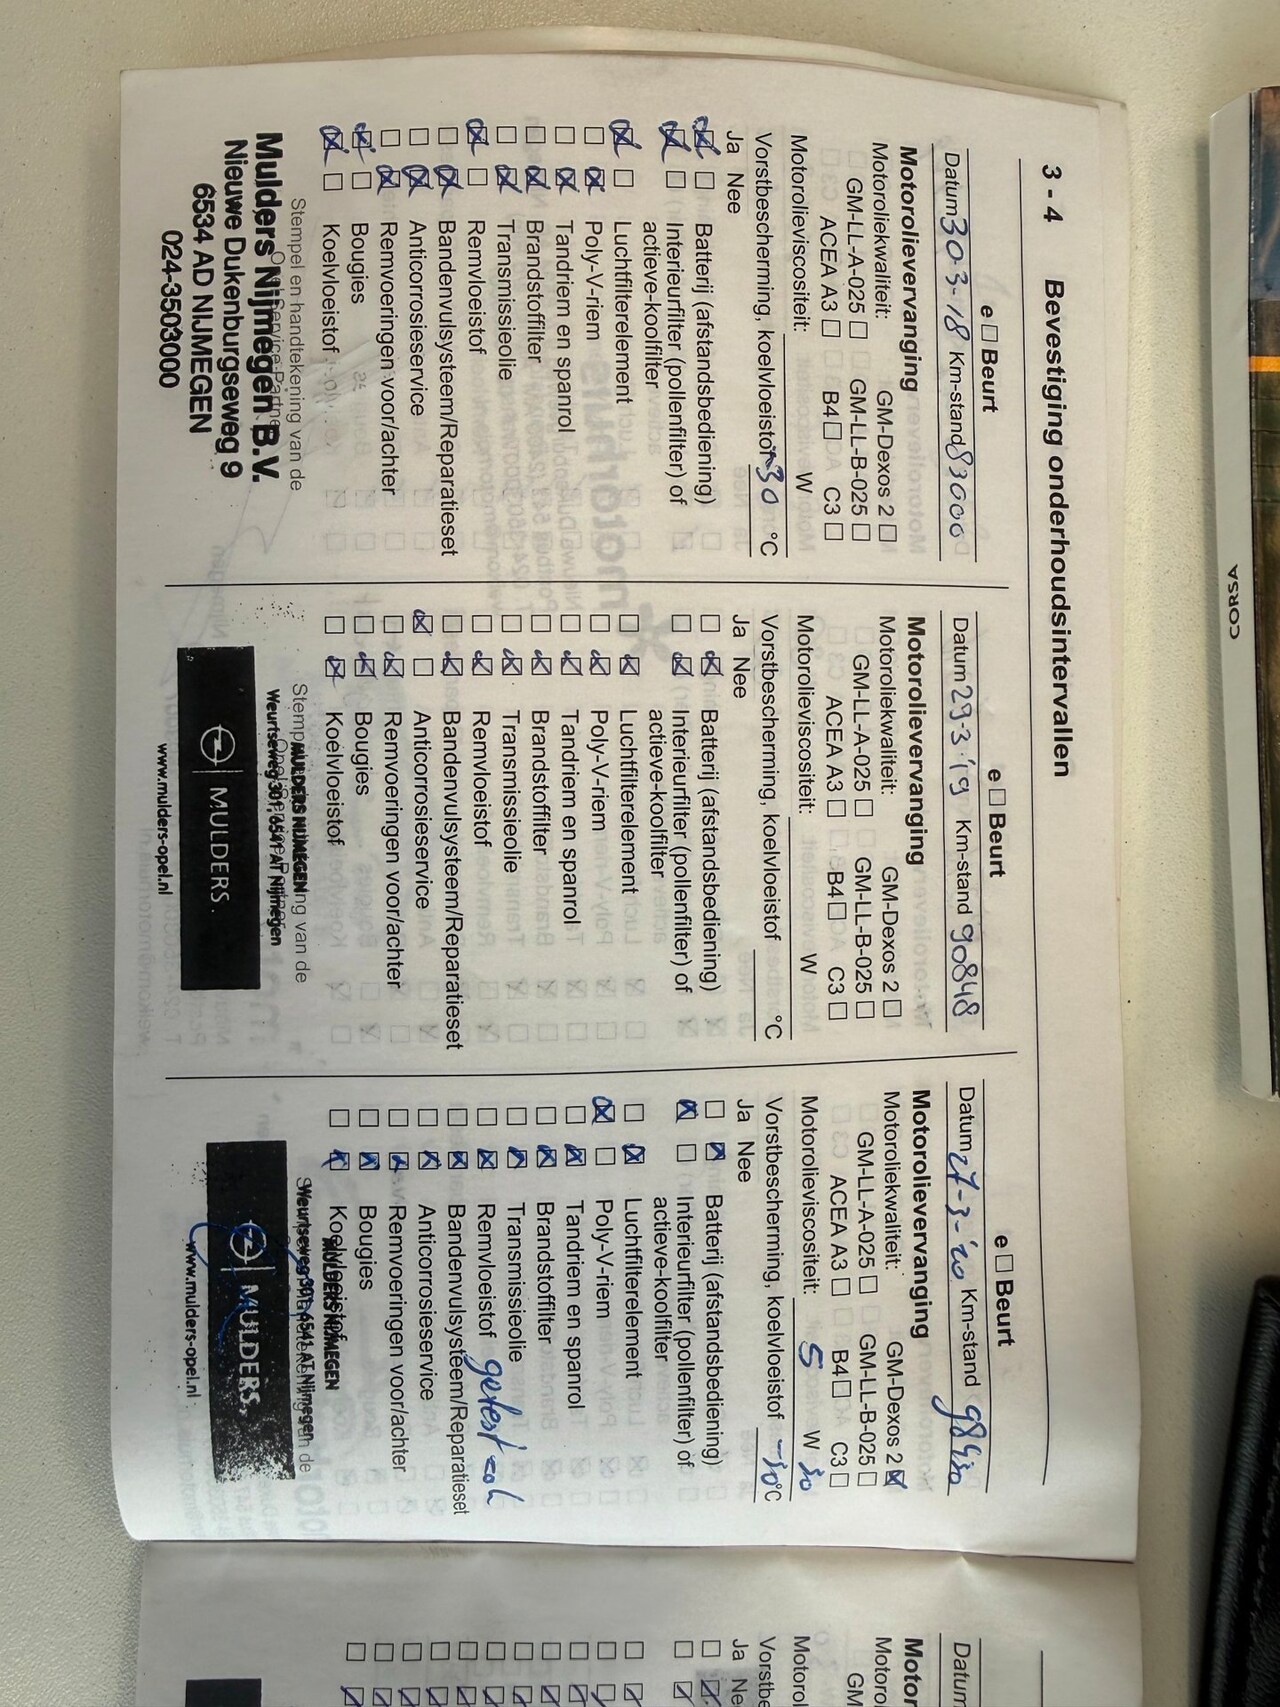 3 - 4 Bevestiging onderhoudsintervallen
e □ Beurt
Datum 30-3-18 Km-stand 83000
Motorolievervanging
Motoroliekwaliteit: GM-Dexos 2 □
GM-LL-A-025 □ GM-LL-B-025 □
ACEA A3 □ B4 □ C3 □
Motorolieviscositeit: W
Vorstbescherming, koelvloeistof -30 °C
Ja Nee
☒ □ Batterij (afstandsbediening)
☒ □ Interieurfilter (pollenfilter) of
actieve-koolfilter
☒ □ Luchtfilterelement
□ ☒ Poly-V-riem
□ ☒ Tandriem en spanrol
□ ☒ Brandstoffilter
□ ☒ Transmissieolie
☒ □ Remvloeistof
□ ☒ Bandenvulsysteem/Reparatieset
□ ☒ Anticorrosieservice
□ ☒ Remvoeringen voor/achter
☒ □ Bougies
☒ □ Koelvloeistof
Stempel en handtekening van de
Opel Service Partner
Mulders Nijmegen B.V.
Nieuwe Dukenburgseweg 9
6534 AD NIJMEGEN
024-3503000
e □ Beurt
Datum 29-3-'19 Km-stand 90848
Motorolievervanging
Motoroliekwaliteit: GM-Dexos 2 □
GM-LL-A-025 □ GM-LL-B-025 □
ACEA A3 □ B4 □ C3 □
Motorolieviscositeit: W
Vorstbescherming, koelvloeistof °C
Ja Nee
□ ☒ Batterij (afstandsbediening)
□ ☒ Interieurfilter (pollenfilter) of
actieve-koolfilter
□ ☒ Luchtfilterelement
□ ☒ Poly-V-riem
□ ☒ Tandriem en spanrol
□ ☒ Brandstoffilter
□ ☒ Transmissieolie
□ ☒ Remvloeistof
□ ☒ Bandenvulsysteem/Reparatieset
☒ □ Anticorrosieservice
□ ☒ Remvoeringen voor/achter
□ ☒ Bougies
□ ☒ Koelvloeistof
MULDERS NIJMEGEN
Weurtseweg 301, 6541 AT Nijmegen
MULDERS.
www.mulders-opel.nl
e □ Beurt
Datum 27-3-'20 Km-stand
Motorolievervanging
Motoroliekwaliteit: GM-Dexos 2 ☒
GM-LL-A-025 □ GM-LL-B-025 □
ACEA A3 □ B4 □ C3 □
Motorolieviscositeit: 5 W 30
Vorstbescherming, koelvloeistof -30 °C
Ja Nee
□ ☒ Batterij (afstandsbediening)
☒ □ Interieurfilter (pollenfilter) of
actieve-koolfilter
□ ☒ Luchtfilterelement
☒ □ Poly-V-riem
□ ☒ Tandriem en spanrol
□ ☒ Brandstoffilter
□ ☒ Transmissieolie
□ ☒ Remvloeistof getest
□ ☒ Bandenvulsysteem/Reparatieset
□ ☒ Anticorrosieservice
□ ☒ Remvoeringen voor/achter
□ ☒ Bougies
□ ☒ Koelvloeistof
MULDERS NIJMEGEN
Weurtseweg 301, 6541 AT Nijmegen
MULDERS.
www.mulders-opel.nl
Datum
Motor
Motorol
GM
Motorol
Vorstbe
Ja Ne
CORSA